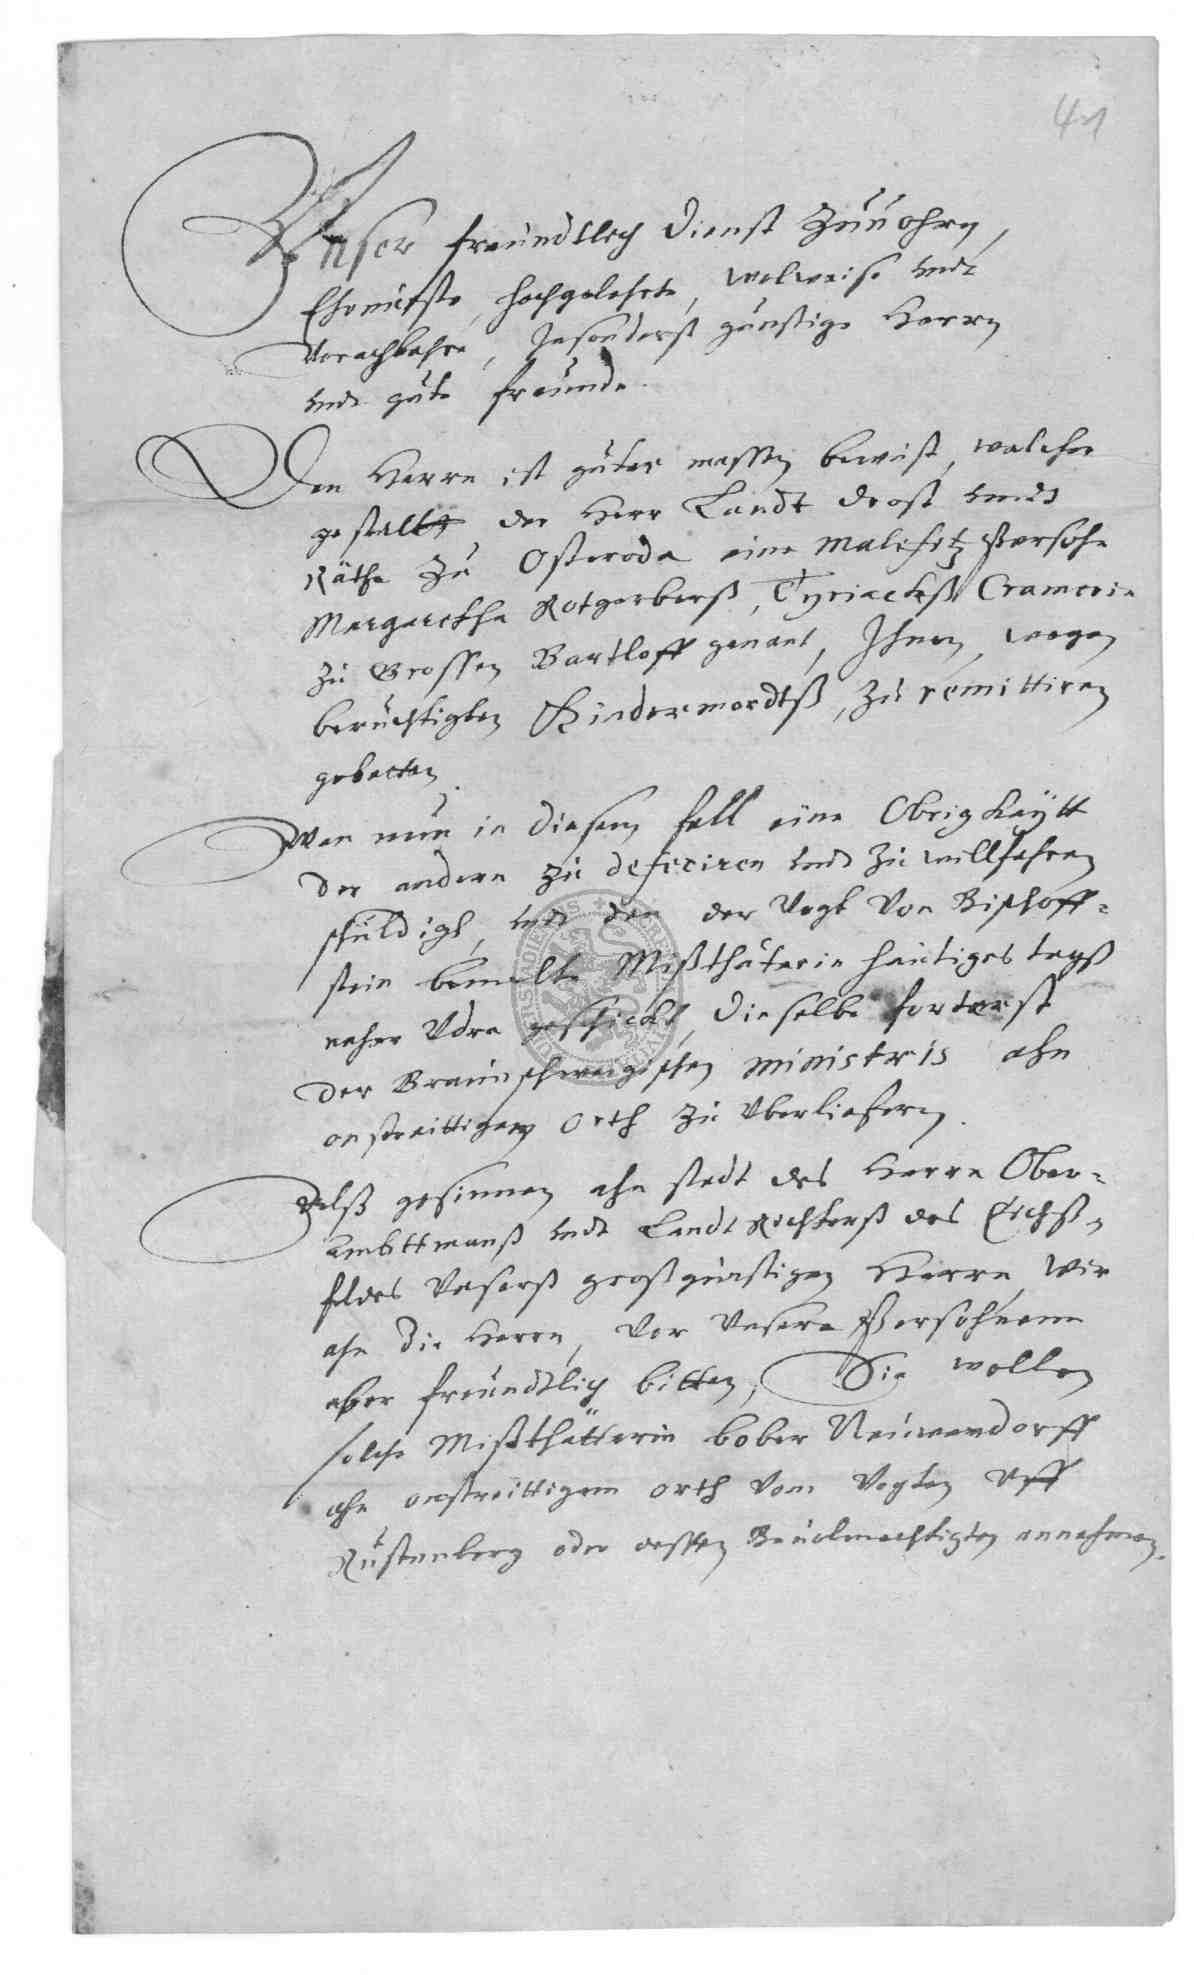 41
Vnser freundtlich dienst zuuohrn,
Ehrnueste, hochgelehrte, wolweise vndt
Vorachtbahre, Insonderst günstige Herrn
vndt gute freunde.
Den Herrn ist guter massen bewust, welcher
gestalt der Herr Landt Drost vndt
Räthe zu Osteroda eine Malefitz Persohn
Margaretha Rotgerberß, Cyriackß Cramerin
zu Grossen Bartloff genant, Ihnen, wegen
beruchtigten Kindermordtß, zu remittiren
gebetten.
Wan nun in diesem fall eine Obrigkeÿtt
der andern zu deferiren vndt zu willfahren
schuldigk, vndt den der Vogt von Bischoff-
stein bemelte Mißthäterin heutiges tagß
naher Vdra geschickt, dieselbe forterst
der Braunschweigischen ministris ahn
onstreittigem orth zu vberliefern.
Alß gesinnen ahn stadt des Herrn Ober-
ambttmanß vndt Landt Richterß des Eichß-
feldes Vnserß großgünstigen Herrn wir
ahn die Herrn, vor Vnsere Persohnenn
aber freundtlich bitten, Sie wollen
solche Mißthätterin bober Neuwendorff
ahn onstreittigem orth vom Vogten vff
Rustenberg oder dessen Beuolmechtigten annehmen.